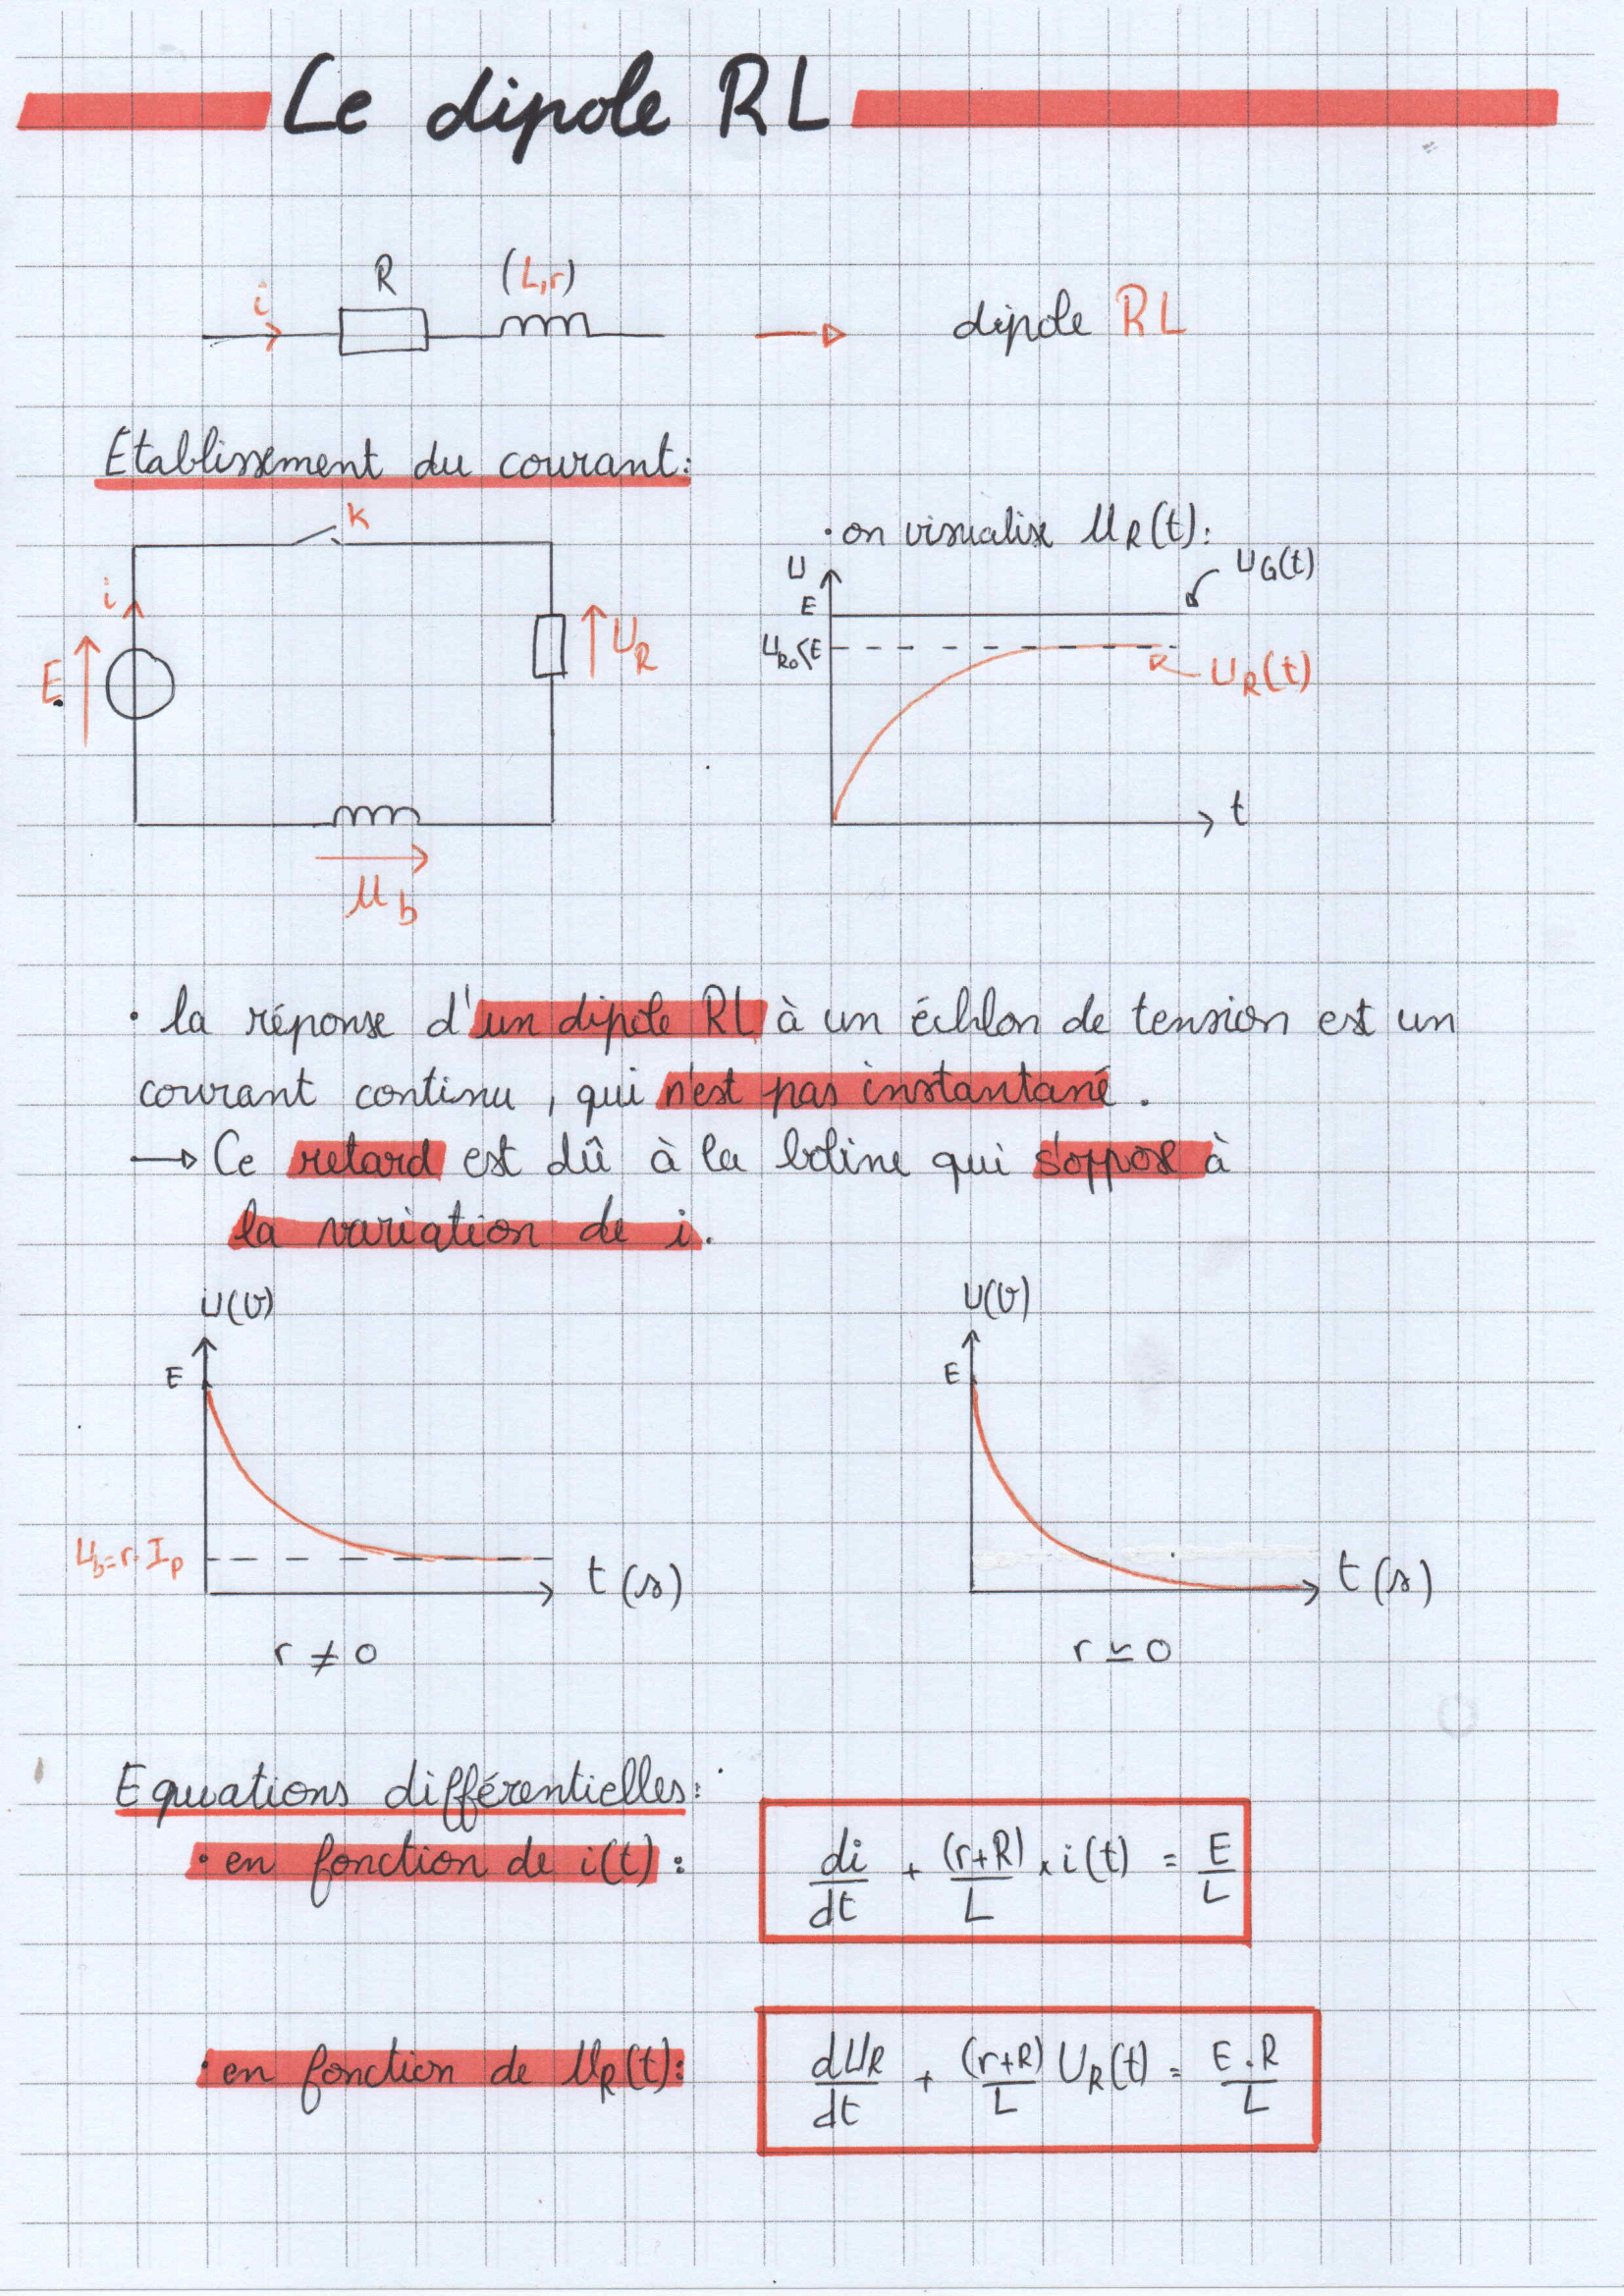 Le dipole RL
R (L,r)
i
dipole RL
Etablissement du courant:
K
• on visualise UR(t):
U
UG(t)
E
i
UR0<E
UR
UR(t)
E
t
Ub
• la réponse d'un dipôle RL à un échlon de tension est un
courant continu, qui n'est pas instantané.
→ Ce retard est dû à la bobine qui s'oppose à
la variation de i.
U(V) U(V)
E E
Ub=r.Ip
t(s) t(s)
r ≠ 0 r ≃ 0
Equations différentielles:
• en fonction de i(t): di/dt + (r+R)/L × i(t) = E/L
• en fonction de UR(t): dUR/dt + (r+R)/L UR(t) = E.R/L